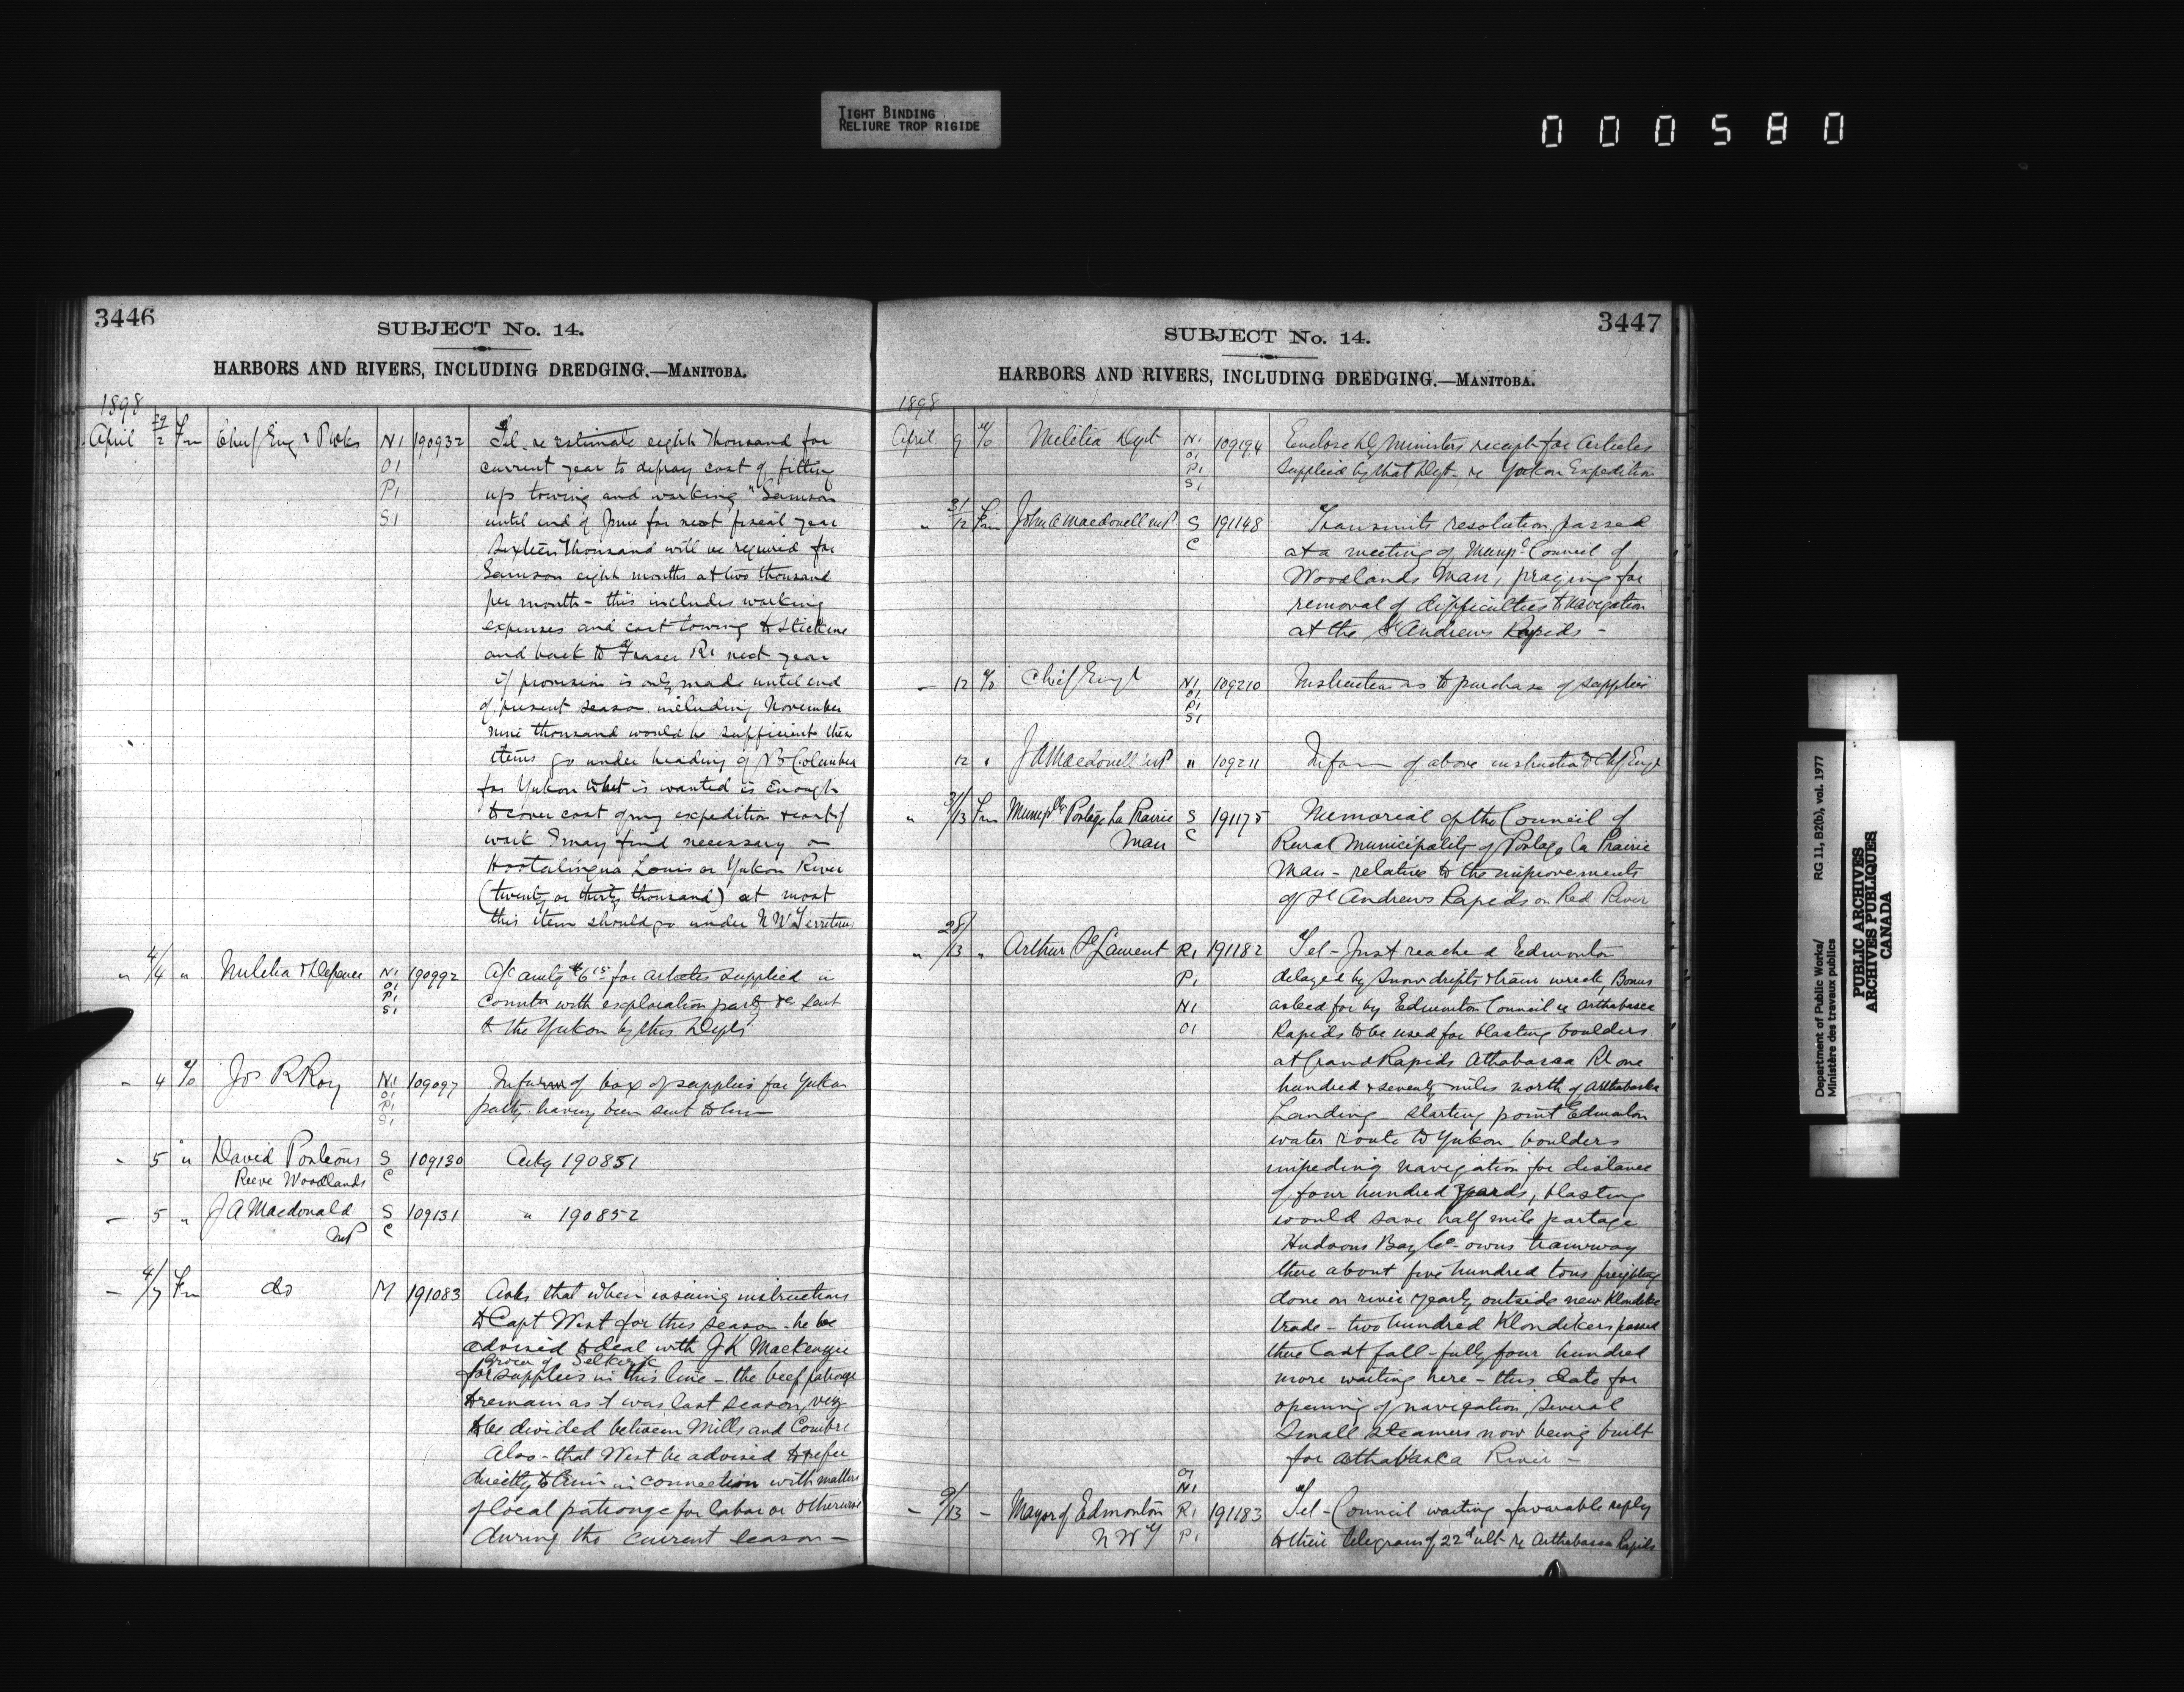 TIGHT BINDING
RELIURE TROP RIGIDE
000580
3446
SUBJECT No. 14.
HARBORS AND RIVERS, INCLUDING DREDGING.—MANITOBA.
1898
April 29/2 Fm Chief Engr P Wks N1 190932 Tel. re Estimate eight thousand for
O1 current year to defray cost of fitting
P1 up towing and working "Samson
S1 until end of June for next fiscal year
Sixteen thousand will be required for
Samson eight months at two thousand
per month - this includes working
expenses and cost towing to Stickine
and back to Fraser R. next year
if provision is only made until end
of present season including November
nine thousand would be sufficient these
items go under heading of B Columbia
for Yukon what is wanted is Enough
to cover cost of my expedition & cost of
work I may find necessary on
Hootalinqua Louis or Yukon River
(twenty or thirty thousand) at most
this item should go under N W Territories
" 4/4 " Militia & Defence N1 190992 A/c amtg $6 15 for articles supplied in
O1 P1 connton with exploration party &c sent
S1 to the Yukon by this Dept
- 4 o/o Jos R Roy N1 109097 Inform of box of supplies for Yukon
O1 P1 party having been sent to him
S1
- 5 " David S 109130 Ackg 190851
Reeve Woodlands C
- 5 " J A Macdonald S 109131 " 190852
MP C
- 4/7 Fm do M 191083 Asks that when issuing instructions
to Capt West for this season - he be
advised to deal with J K Mackenzie
Grocer of Selkirk
for supplies in this line - the beef patronage
to remain as it was last season, viz
to be divided between Mills and
Also - that West be advised to refer
directly to him in connection with matters
of local patronage for labor or otherwise
during the current season -
3447
SUBJECT No. 14.
HARBORS AND RIVERS, INCLUDING DREDGING.—MANITOBA.
1898
April 9 o/o Militia Dept N1 109194 Enclose Dy Ministers receipt for Articles
O1 P1 supplied by that Dept. re Yukon Expedition
S1
" 31/12 Fm John A Macdonell MP S 191148 Transmits resolution passed
C at a meeting of Munpl Council of
Woodlands Man, praying for
removal of difficulties to navigation
at the St Andrews Rapids -
- 12 o/o Chief Engr N1 109210 Instructions to purchase of supplies
O1
P1
S1
12 " J A Macdonell MP " 109211 Inform of above instructn to Chf Engr
" 31/13 Fm Muniplty Portage La Prairie S 191175 Memorial of the Council of
Man C Rural Municipality of Portage la Prairie
Man - relative to the improvements
of St Andrews Rapids on Red River
" 28/13 " Arthur St Laurent R1 191182 Tel - Just reached Edmonton
P1 delayed by snow drifts & train wreck, Bonus
N1 asked for by Edmonton Council re Arthabasca
O1 Rapids to be used for blasting boulders
at Grand Rapids Athabasca R one
hundred & seventy miles north of Arthabaska
Landing - starting point Edmonton
water route to Yukon, boulders
impeding navigation for distance
of four hundred yards, blasting
would save half mile portage
Hudsons Bay Co - owns tramway
there about five hundred tons freighting
done on river yearly outside new Klondike
trade - two hundred Klondikers passed
there last fall - fully four hundred
more waiting here - this date for
opening of navigation, several
Small steamers now being built
for Athabaska River -
O1
N1
- 9/13 - Mayor of Edmonton R1 191183 Tel - Council waiting favorable reply
N W T P1 to their telegram of 22d ult re Arthabasca Rapids
Department of Public Works/ RG 11, B2(b), vol. 1977
Ministère des travaux publics
PUBLIC ARCHIVES
ARCHIVES PUBLIQUES
CANADA